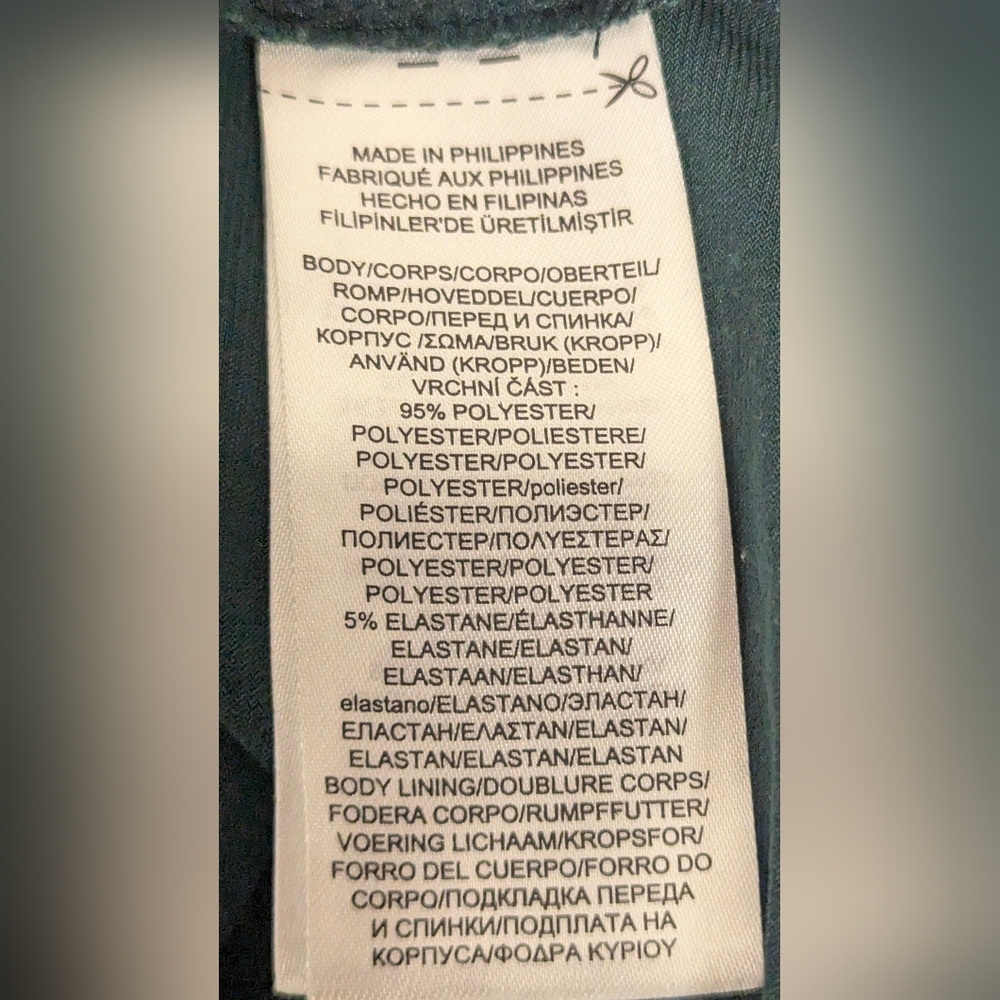 MADE IN PHILIPPINES
FABRIQUÉ AUX PHILIPPINES
HECHO EN FILIPINAS
FİLİPİNLER'DE ÜRETİLMİŞTİR
BODY/CORPS/CORPO/OBERTEIL/
ROMP/HOVEDDEL/CUERPO/
CORPO/ПЕРЕД И СПИНКА/
КОРПУС /ΣΩΜΑ/BRUK (KROPP)/
ANVÄND (KROPP)/BEDEN/
VRCHNÍ ČÁST :
95% POLYESTER/
POLYESTER/POLIESTERE/
POLYESTER/POLYESTER/
POLYESTER/poliester/
POLIÉSTER/ПОЛИЭСТЕР/
ПОЛИЕСТЕР/ΠΟΛΥΕΣΤΕΡΑΣ/
POLYESTER/POLYESTER/
POLYESTER/POLYESTER
5% ELASTANE/ÉLASTHANNE/
ELASTANE/ELASTAN/
ELASTAAN/ELASTHAN/
elastano/ELASTANO/ЭЛАСТАН/
ЕЛАСТАН/ΕΛΑΣΤΑΝ/ELASTAN/
ELASTAN/ELASTAN/ELASTAN
BODY LINING/DOUBLURE CORPS/
FODERA CORPO/RUMPFFUTTER/
VOERING LICHAAM/KROPSFOR/
FORRO DEL CUERPO/FORRO DO
CORPO/ПОДКЛАДКА ПЕРЕДА
И СПИНКИ/ПОДПЛАТА НА
КОРПУСА/ΦΟΔΡΑ ΚΥΡΙΟΥ